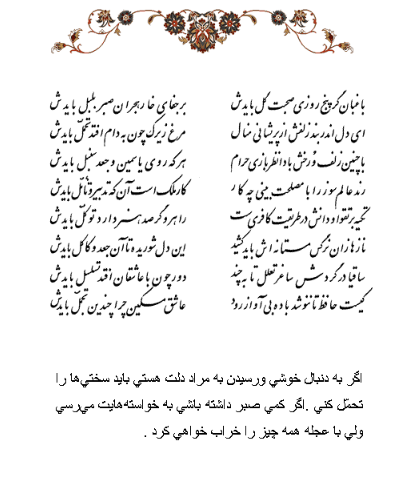 باغبان گر پنج روزی صحبت گل بایدش بر جفای خار هجران صبر بلبل بایدش
ای دل اندر بند زلفش از پریشانی منال مرغ زیرک چون به دام افتد تحمّل بایدش
با چنین زلف و رخش بادا نظربازی حرام هر که روی یاسمین و جعد سنبل بایدش
رند عالم سوز را با مصلحت بینی چه کار کار ملک است آن که تدبیر و تأمّل بایدش
تکیه بر تقوا و دانش در طریقت کافری ست راهرو گر صد هنر دارد توکّل بایدش
نازها زان نرگس مستانه اش باید کشید این دل شوریده تا آن جعد و کاکل بایدش
ساقیا در گردش ساغر تعلل تا به چند دور چون با عاشقان افتد تسلسل بایدش
کیست حافظ تا ننوشد باده بی آواز رود عاشق مسکین چرا چندین تجمّل بایدش
اگر به دنبال خوشي ورسيدن به مراد دلت هستي بايد سختي‌ها را
تحمّل كني .اگر كمي صبر داشته باشي به خواسته‌هايت مي‌رسي
ولي با عجله همه چيز را خراب خواهي كرد .